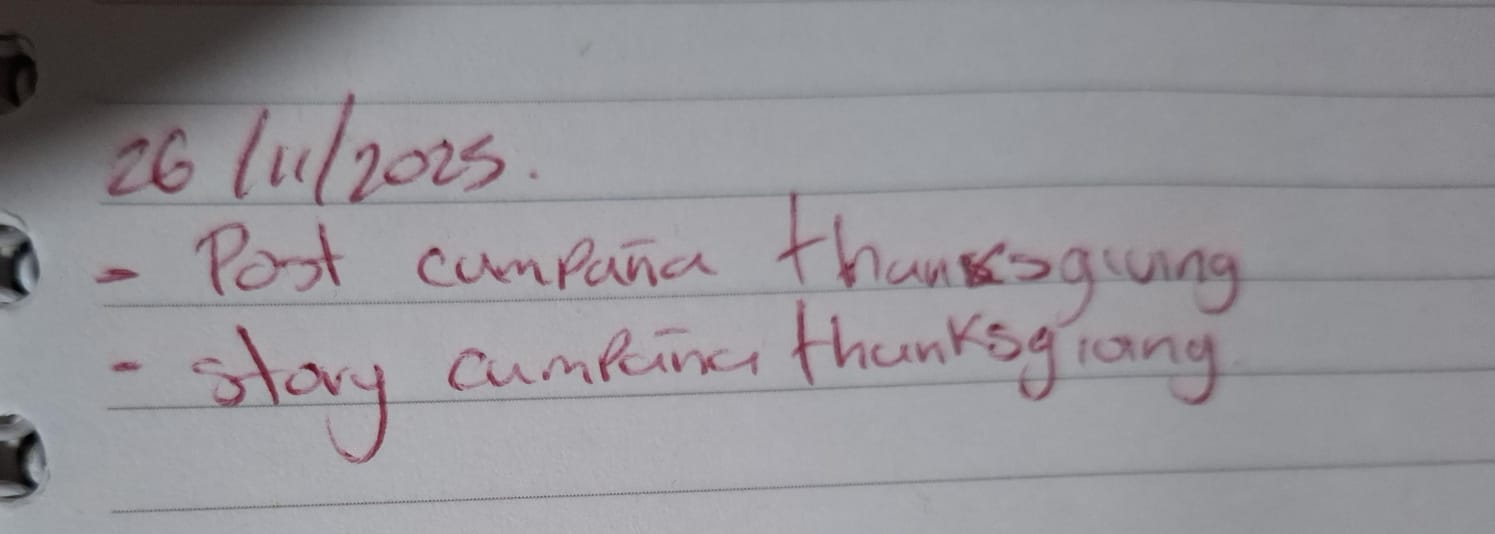 26/11/2025.
- Post campaña thanksgiving
- story campaña thanksgiving